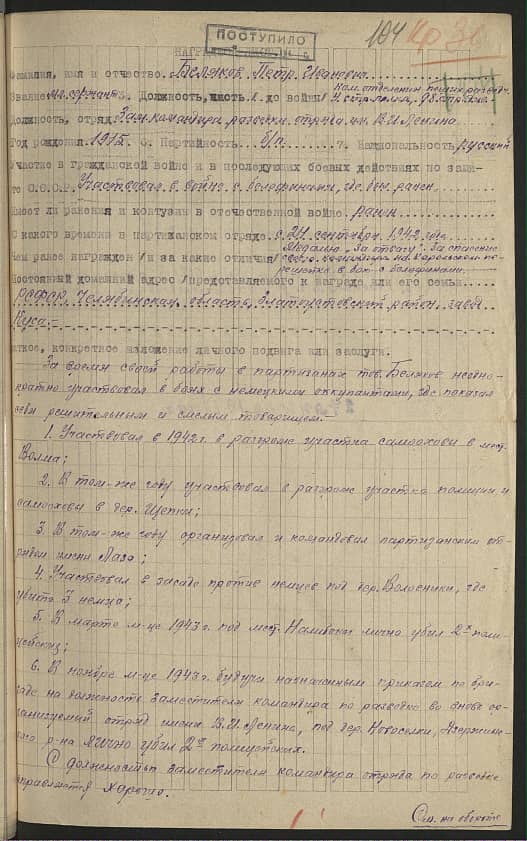 ПОСТУПИЛО
104
НАГРАДНОЙ ЛИСТ
Фамилия, имя и отчество. Беляков Петр Иванович
Ком. отделения пешей разведки
Звание мл. сержант 3. Должность, часть /. до войны/
Должность, отряд. Зам. командира разведки отряда им. В.И. Ленина
Год рождения 1915. 6. Партийность б/п 7. Национальность русский
Участие в гражданской войне и в последующих боевых действиях по защи-
те С.С.С.Р. Участвовал в войне с белофинами, где был ранен.
Имеет ли ранения и контузии в отечественной войне. ранен
С какого времени в партизанском отряде. с 24 сентября 1942 года
Медалью "За отвагу". За спасение
Чем ранее награжден /и за какие отличия/ своего командира на Карельском пе-
решейке в бою с белофинами.
Постоянный домашний адрес /представляемого к награде или его семьи.
РСФСР, Челябинская область, Златоустовский район, завод
Куса.
краткое, конкретное изложение личного подвига или заслуги.
За время своей работы в партизанах тов. Беляков неодно-
кратно участвовал в боях с немецкими оккупантами, где показал
себя решительным и смелым товарищем.
1. Участвовал в 1942 г. в разгроме участка самооховы в мест.
Волма;
2. В том-же году участвовал в разгроме участка полиции и
самооховы в дер. Щепки;
3. В том-же году организовал и командовал партизанским от-
рядом имени Лазо;
4. Участвовал в засаде против немцев под дер. Волосники, где
убито 3 немца;
5. В марте м-це 1943 г. под мест. Налибоки лично убил 2х поли-
цейских;
6. В ноябре м-це 1943 г. будучи назначенным приказом по бри-
гаде на должность заместителя командира по разведке во вновь ор-
ганизуемый отряд имени В.И. Ленина, под дер. Новоселки, Дзержинс-
кого р-на лично убил 2х полицейских.
С должностью заместителя командира отряда по разведке
справляется хорошо.
См. на обороте